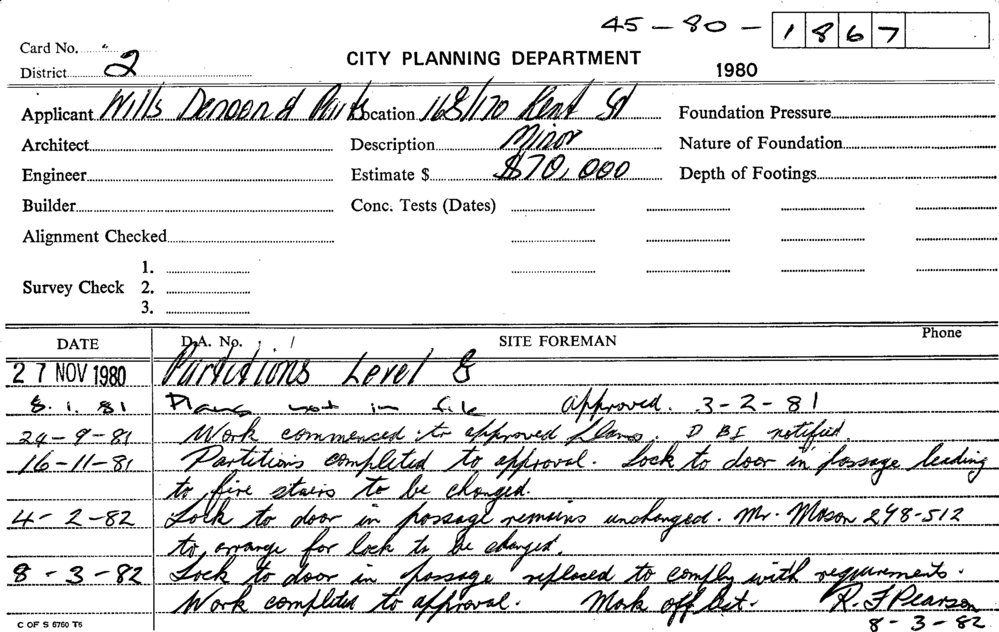 45 - 80 - 1867
Card No.
District 2
CITY PLANNING DEPARTMENT
1980
Applicant Wills Denoon & Location 168/170 Kent St Foundation Pressure
Architect Description Minor Nature of Foundation
Engineer Estimate $ $70,000 Depth of Footings
Builder Conc. Tests (Dates)
Alignment Checked
1.
Survey Check 2.
3.
DATE D.A. No. SITE FOREMAN Phone
27 NOV 1980 Partitions Level 8
8.1.81 Plans not in file Approved. 3-2-81
24-9-81 Work commenced to approved plans. D B I notified.
16-11-81 Partitions completed to approval. Lock to door in passage leading
to fire stairs to be changed.
4-2-82 Lock to door in passage remains unchanged. Mr. Mason 298-512
to arrange for lock to be changed.
8-3-82 Lock to door in passage replaced to comply with requirements.
Work completed to approval. Mark off list. R. F Pearson
8-3-82
C OF S 6760 T6